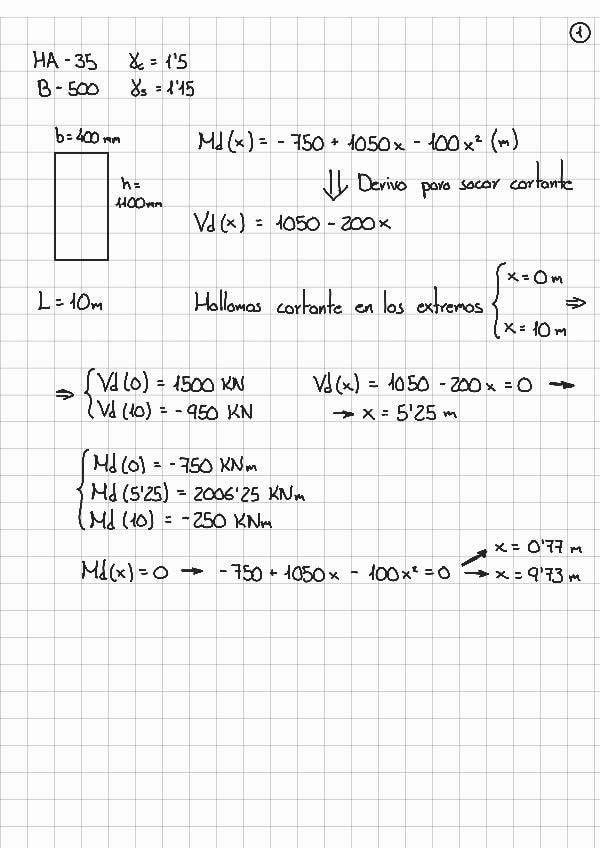 1
HA - 35 γc = 1'5
B - 500 γs = 1'15
b = 400 mm
h = 1100 mm
Md(x) = - 750 + 1050x - 100x² (m)
⇓ Derivo para sacar cortante
Vd(x) = 1050 - 200x
L = 10m Hallamos cortante en los extremos { x = 0 m
x = 10 m ⇒
⇒ { Vd(0) = 1500 KN
Vd(10) = -950 KN
Vd(x) = 1050 - 200x = 0 →
→ x = 5'25 m
{ Md(0) = -750 KNm
Md(5'25) = 2006'25 KNm
Md(10) = -250 KNm
Md(x) = 0 → -750 + 1050x - 100x² = 0
x = 0'77 m
→ x = 9'73 m